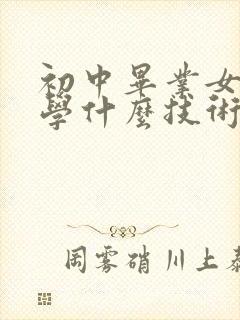 初中畢業女
學什麼技術
岡雾硝川上葵